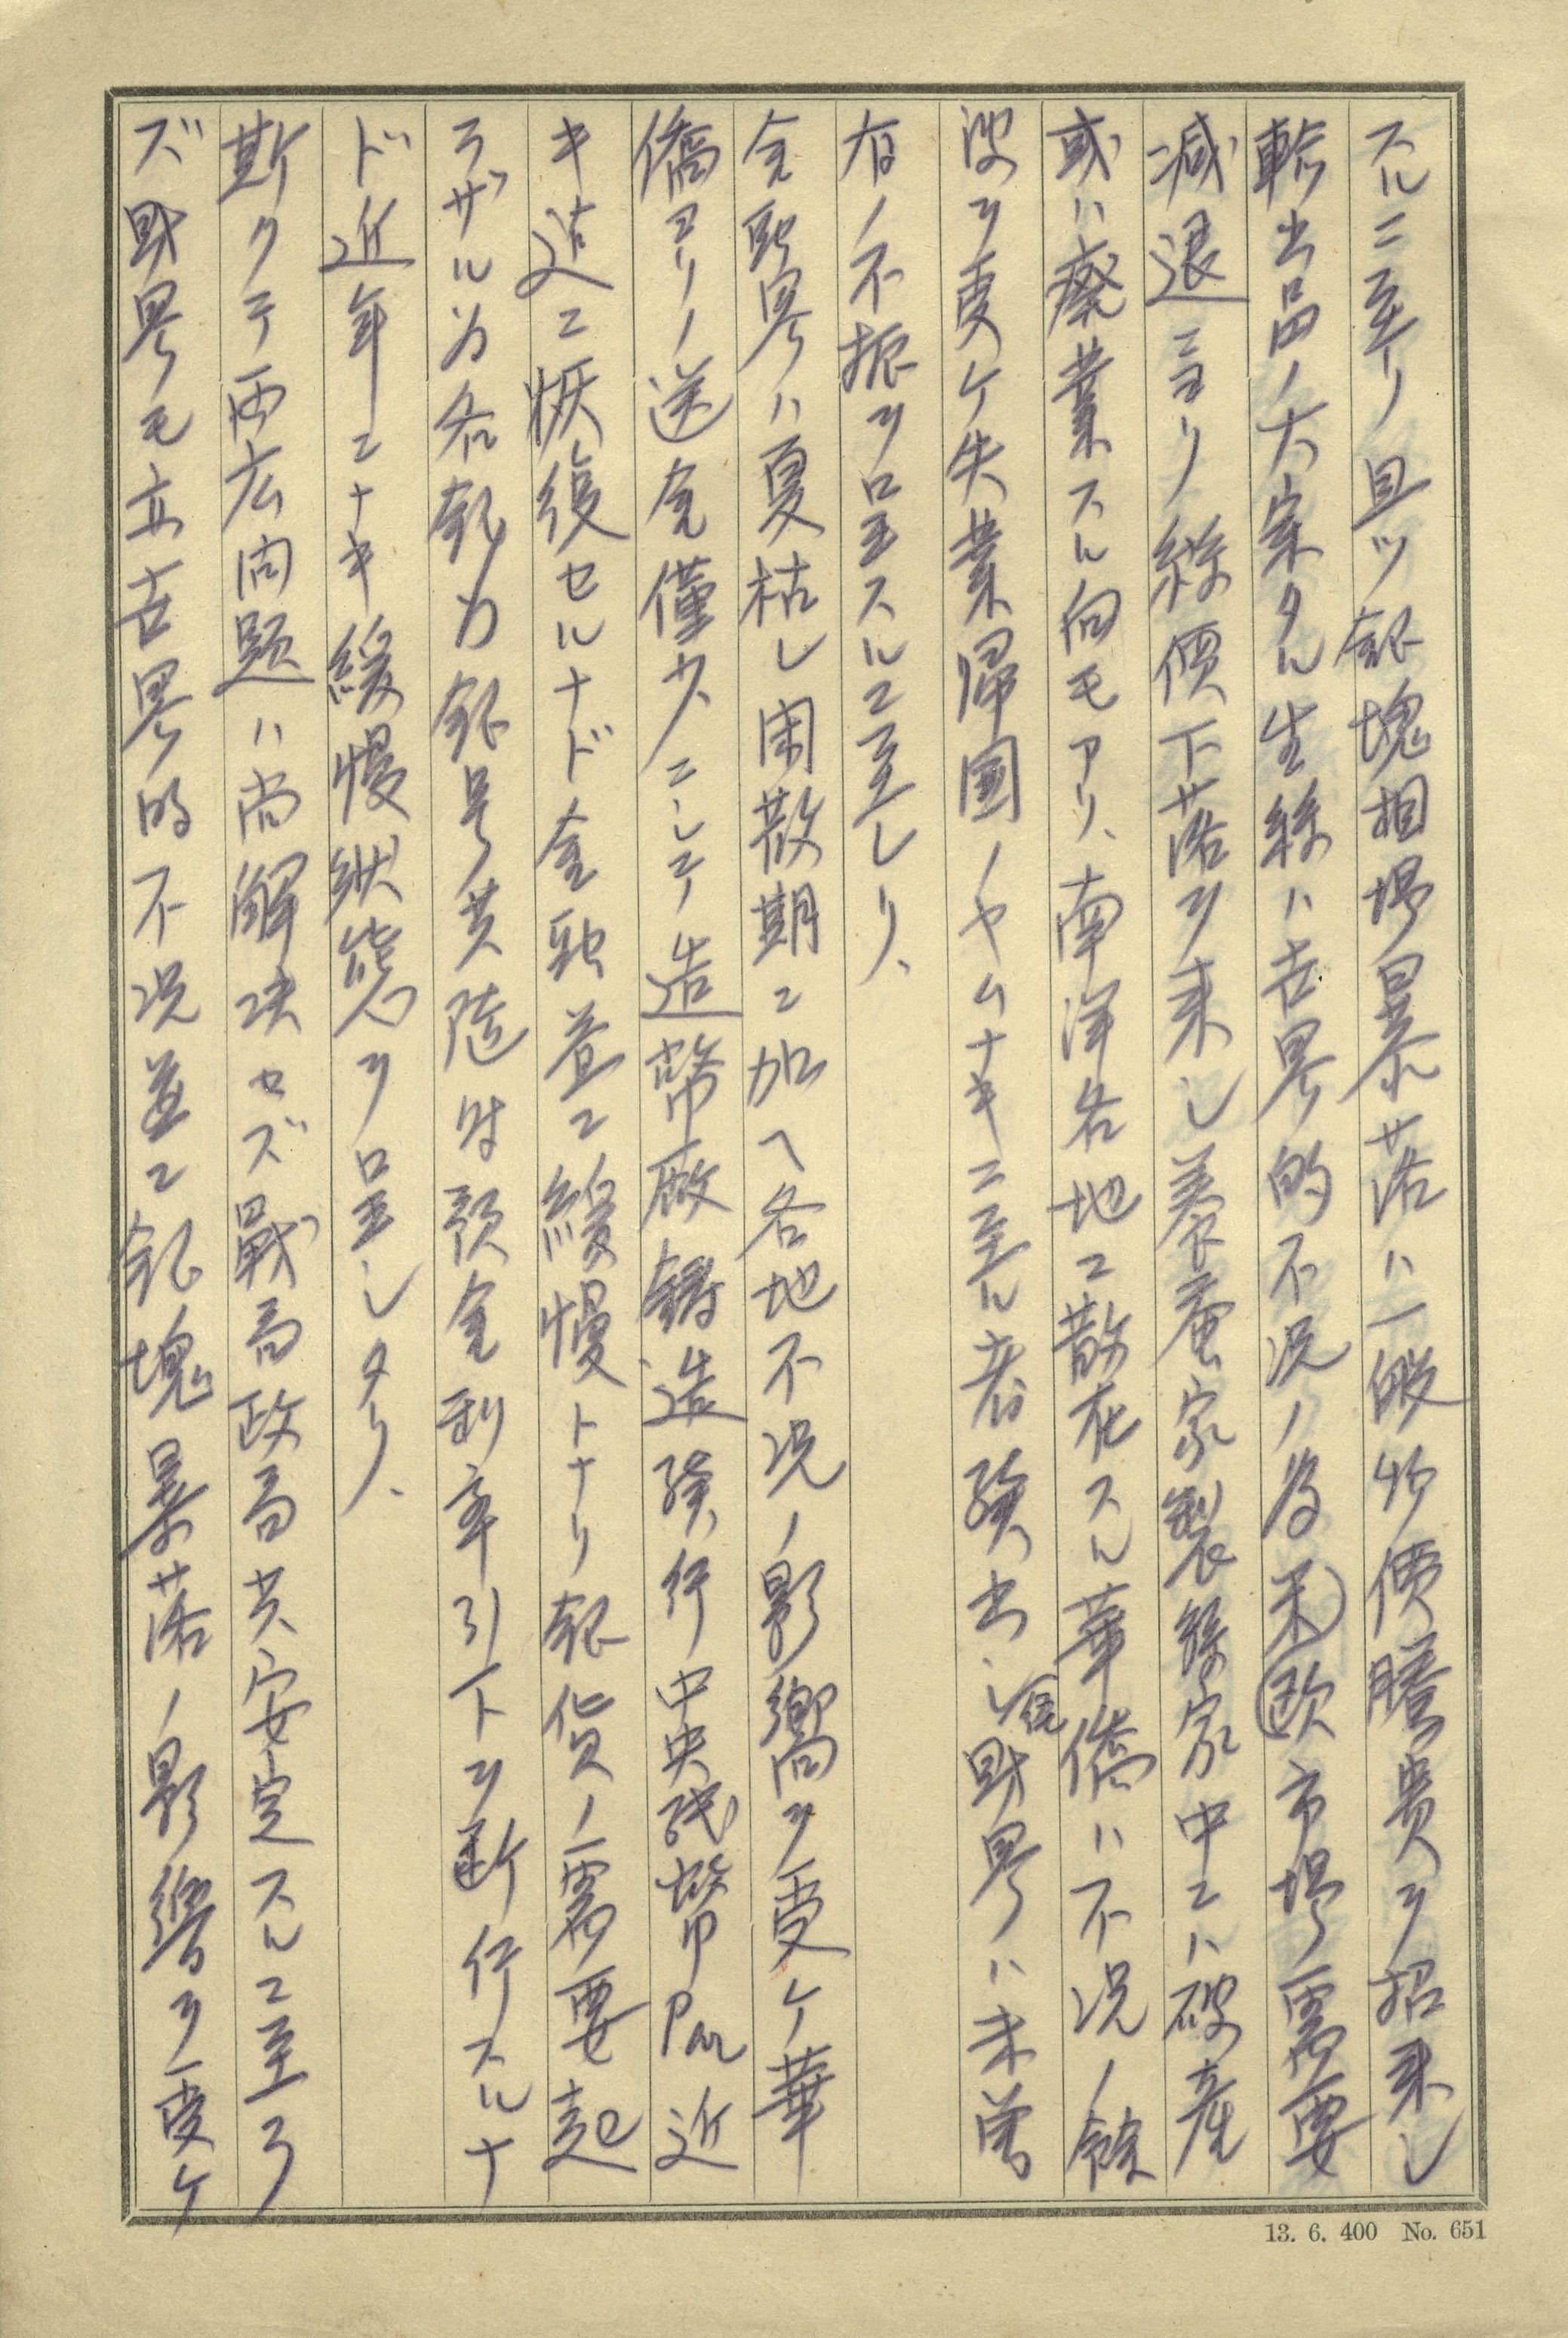 スルニ至リ且ツ銀塊相場暴落ハ一般物價騰貴ヲ招来シ
輸出品ノ大宗タル生絲ハ世界的不況ノ為米欧市場需要
減退ニヨリ絲價下落ヲ来シ養蚕家製絲家中ニハ破産
或ハ癈業スル向モアリ、南洋各地ニ散在スル華僑ハ不況ノ餘
波ヲ受ケ失業帰国ノヤムナキニ至ル者續出シ 財界ハ未曽
有ノ不振ヲ呈スルニ至レリ、
金融界ハ夏枯レ閑散期ニ加ヘ各地不況ノ影響ヲ受ケ華
僑ヨリノ送金僅少ニシテ造幣廠鋳造續行中央紙幣Par近
キ迠ニ恢復セルナド金融益ニ緩慢トナリ銀貨ノ需要起
ラザル為各銀行銀号共随時預金利率引下ヲ断行スルナ
ド近年ニナキ緩慢状態ヲ呈シタリ、
斯クテ両広問題ハ尚解決セズ戰局政局共安定スルニ至ラ
ズ財界モ亦世界的不況並ニ銀塊暴落ノ影響ヲ受ケ
13. 6. 400 No. 651